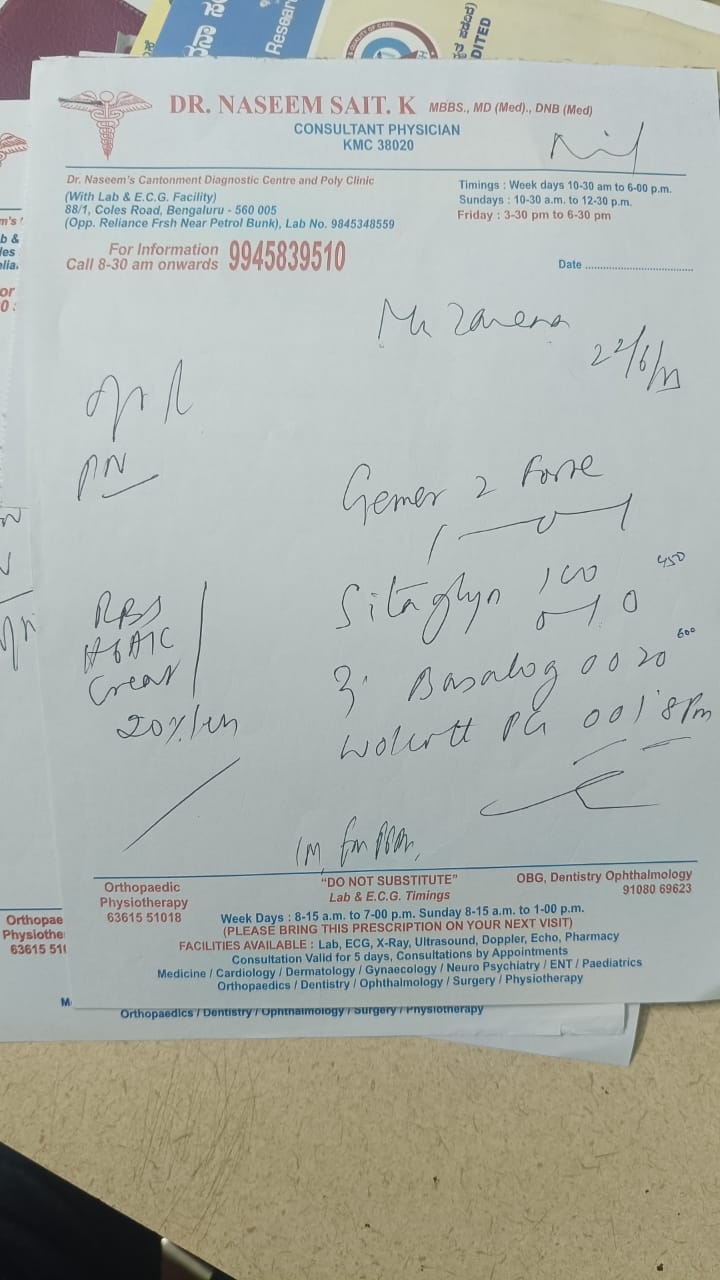 DR. NASEEM SAIT. K MBBS., MD (Med)., DNB (Med)
CONSULTANT PHYSICIAN
KMC 38020
Dr. Naseem's Cantonment Diagnostic Centre and Poly Clinic
(With Lab & E.C.G. Facility)
88/1, Coles Road, Bengaluru - 560 005
(Opp. Reliance Frsh Near Petrol Bunk), Lab No. 9845348559
Timings : Week days 10-30 am to 6-00 p.m.
Sundays : 10-30 a.m. to 12-30 p.m.
Friday : 3-30 pm to 6-30 pm
For Information
Call 8-30 am onwards 9945839510
Date
22/6/
PN
Gemer 2 Forte
1 0 1
Sitaglyn 100 450
0 1 0
RBS
HbA1C
Creat
20%
3. Basalog 0 0 20 600
PG 0 0 1 8 Pm
1M
"DO NOT SUBSTITUTE"
Lab & E.C.G. Timings
Orthopaedic
Physiotherapy
63615 51018
OBG, Dentistry Ophthalmology
91080 69623
Week Days : 8-15 a.m. to 7-00 p.m. Sunday 8-15 a.m. to 1-00 p.m.
(PLEASE BRING THIS PRESCRIPTION ON YOUR NEXT VISIT)
FACILITIES AVAILABLE : Lab, ECG, X-Ray, Ultrasound, Doppler, Echo, Pharmacy
Consultation Valid for 5 days, Consultations by Appointments
Medicine / Cardiology / Dermatology / Gynaecology / Neuro Psychiatry / ENT / Paediatrics
Orthopaedics / Dentistry / Ophthalmology / Surgery / Physiotherapy
Orthopaedics / Dentistry / Ophthalmology / Surgery / Physiotherapy